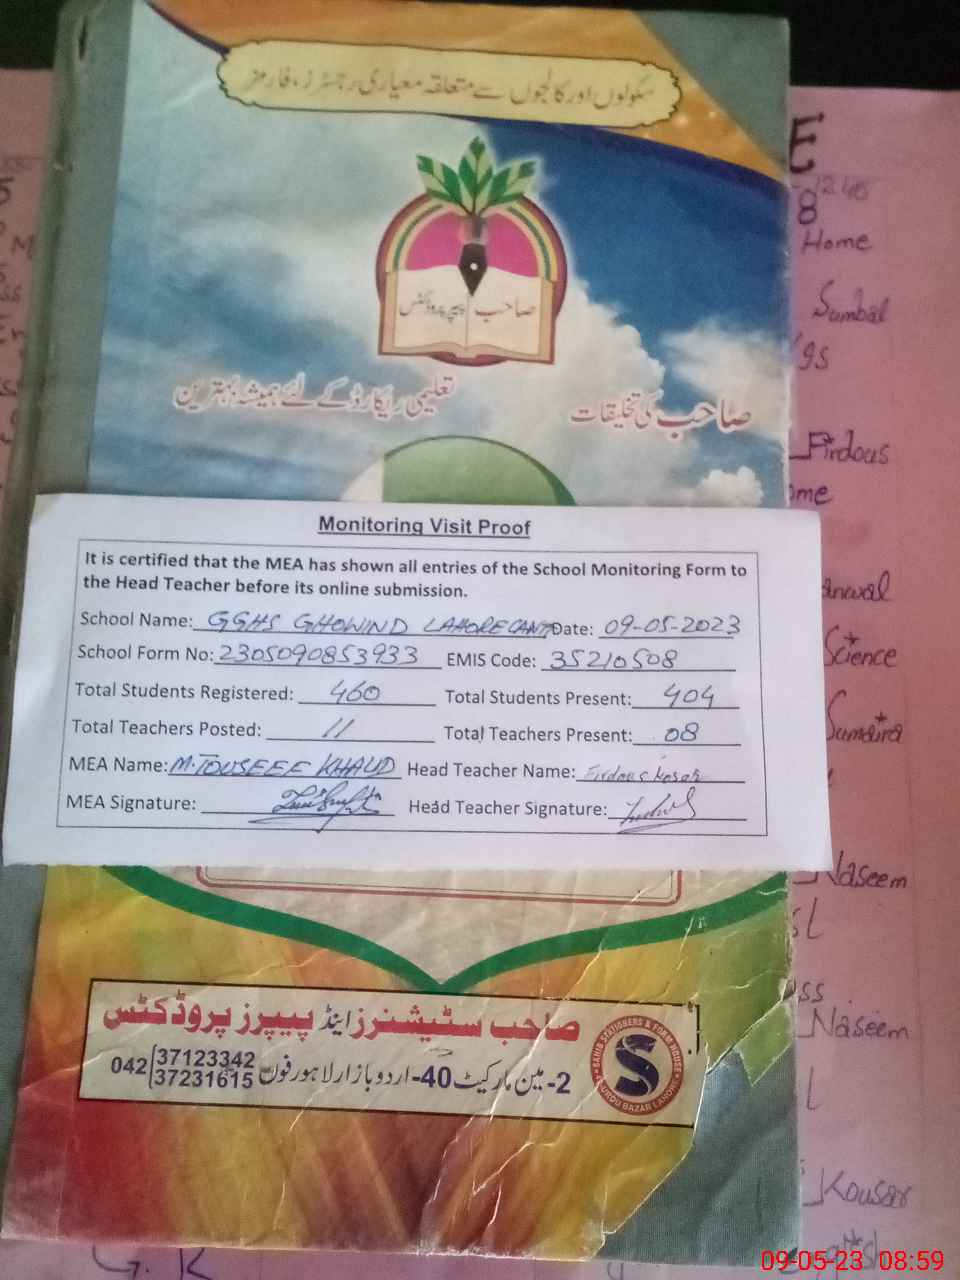 سکولوں اور کالجوں سے متعلقہ معیاری رجسٹرز، فارمز
صاحب پیپر پروڈکٹس
صاحب کی تخلیقات
تعلیمی ریکارڈ کے لئے ہمیشہ بہترین
Monitoring Visit Proof
It is certified that the MEA has shown all entries of the School Monitoring Form to
the Head Teacher before its online submission.
School Name: GGHS GHOWIND LAHORE CANTT Date: 09-05-2023
School Form No: 2305090853933 EMIS Code: 35210508
Total Students Registered: 460 Total Students Present: 404
Total Teachers Posted: 11 Total Teachers Present: 08
MEA Name: M. TOUSEEF KHALID Head Teacher Name: Firdous Kosar
MEA Signature: Head Teacher Signature:
صاحب سٹیشنرز اینڈ پیپرز پروڈکٹس
2-مین مارکیٹ 40-اردو بازار لاہور فون 042 37123342
37231615
SAHIB STATIONERS & FORM HOUSE
URDU BAZAR LAHORE
S
E
8
Home
Sumbal
Firdous
Science
Sumaira
Naseem
Naseem
Kousar
G. K
09-05-23 08:59